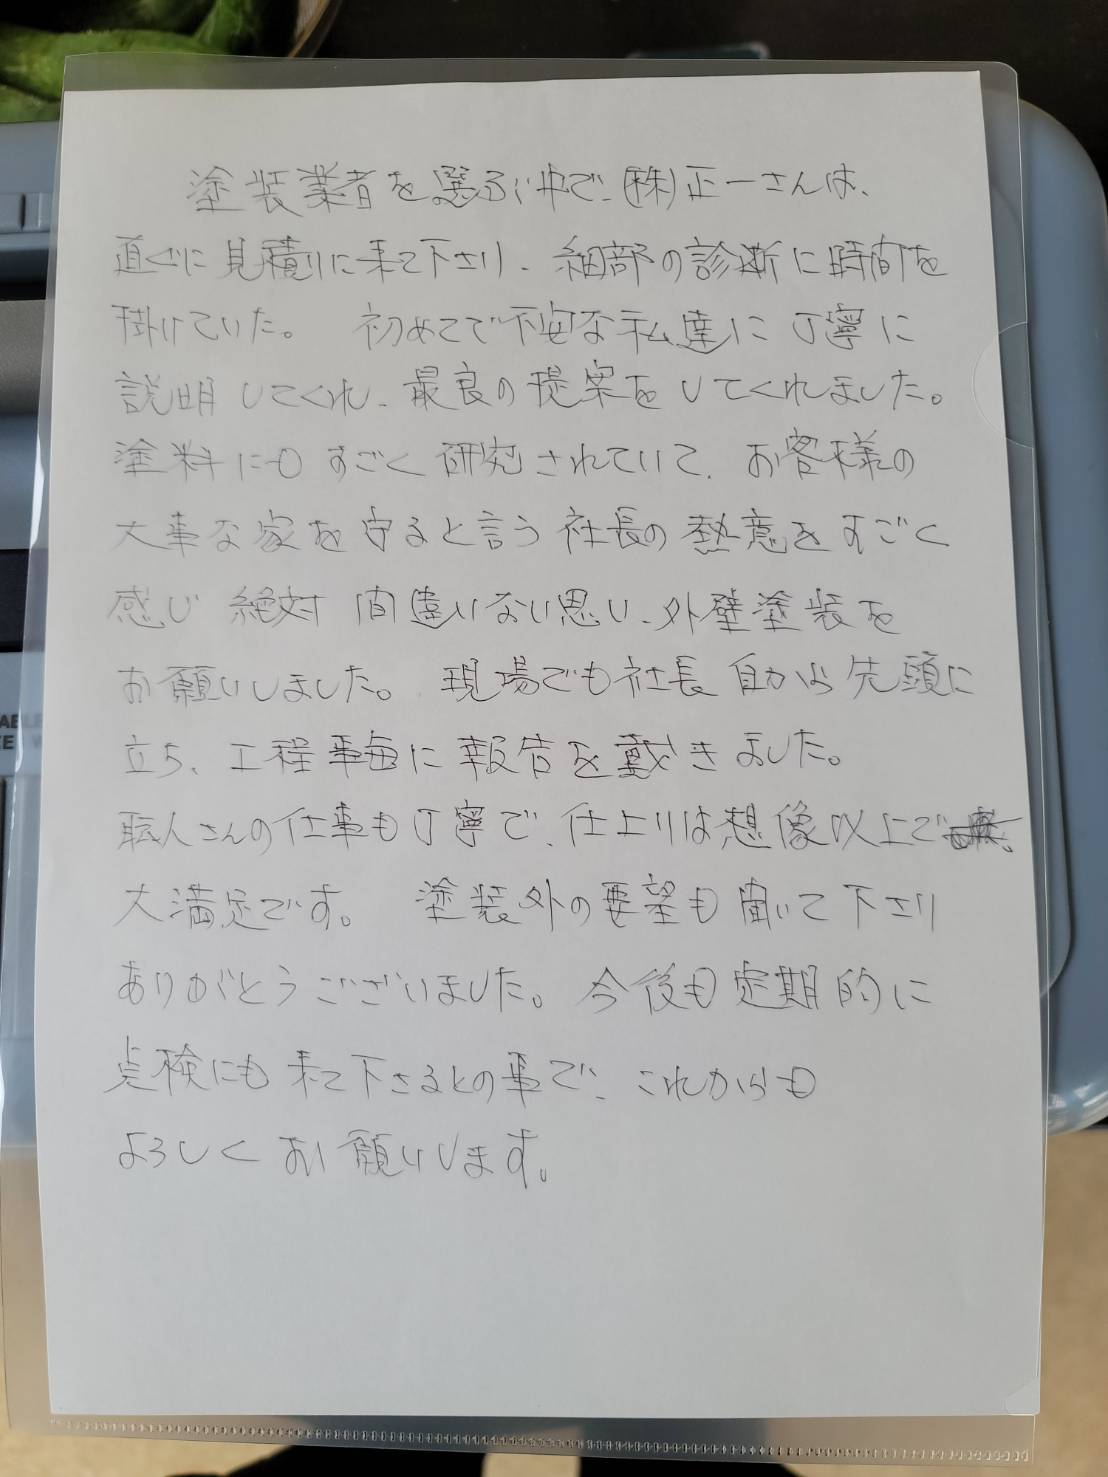 塗装業者を選ぶ中で、(株)正一さんは、
直ぐに見積りに来て下さり、細部の診断に時間を
掛けていた。 初めてで不安な私達に丁寧に
説明してくれ、最良の提案をしてくれました。
塗料にもすごく研究されていて、お客様の
大事な家を守ると言う社長の熱意をすごく
感じ 絶対 間違いない思い、外壁塗装を
お願いしました。 現場でも社長 自から先頭に
立ち、工程事毎に報告を戴きました。
職人さんの仕事も丁寧で、仕上りは想像以上で
大満足です。 塗装外の要望も聞いて下さり
ありがとうございました。今後も定期的に
点検にも来て下さるとの事で、これからも
よろしくお願いします。
ABLE
ZE W